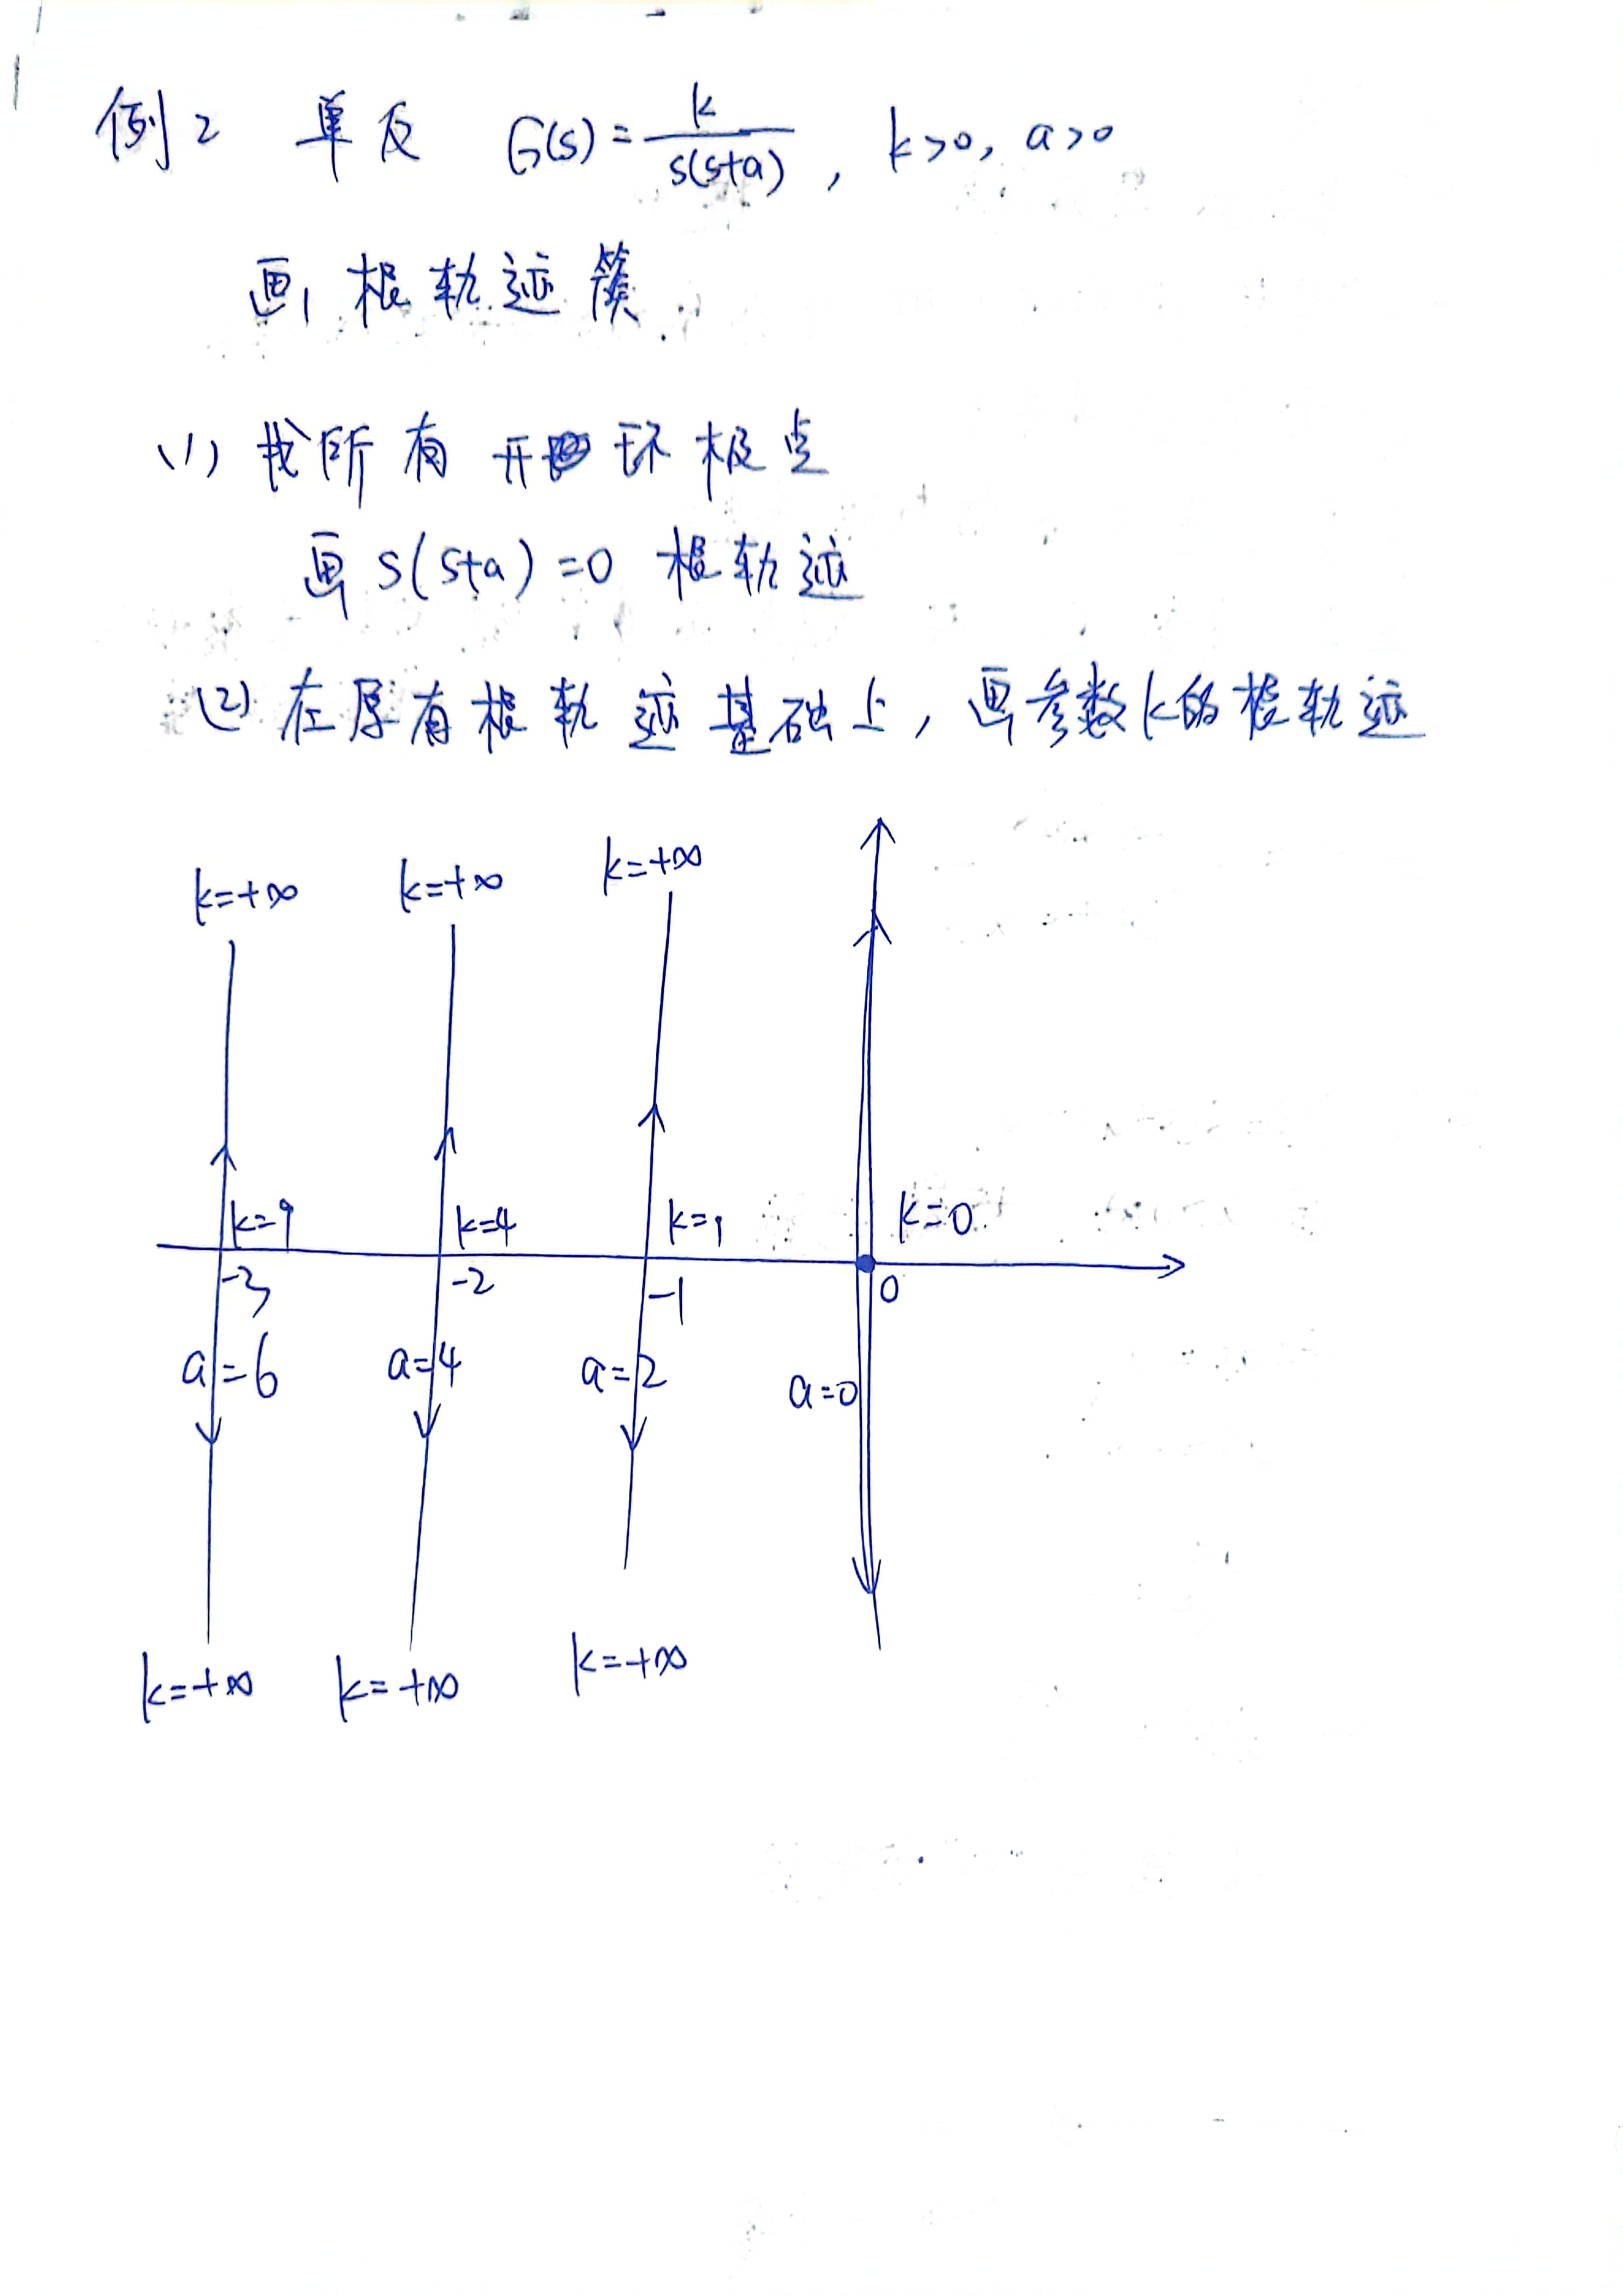 例2 单反 G(s)=k/s(s+a), k>0, a>0
画根轨迹簇.
(1) 找所有开环极点
画 s(s+a)=0 根轨迹
(2) 在原有根轨迹基础上, 画参数k的根轨迹
k=+∞ k=+∞ k=+∞
k=9 k=4 k=1 k=0
-3 -2 -1 0
a=6 a=4 a=2 a=0
k=+∞ k=+∞ k=+∞